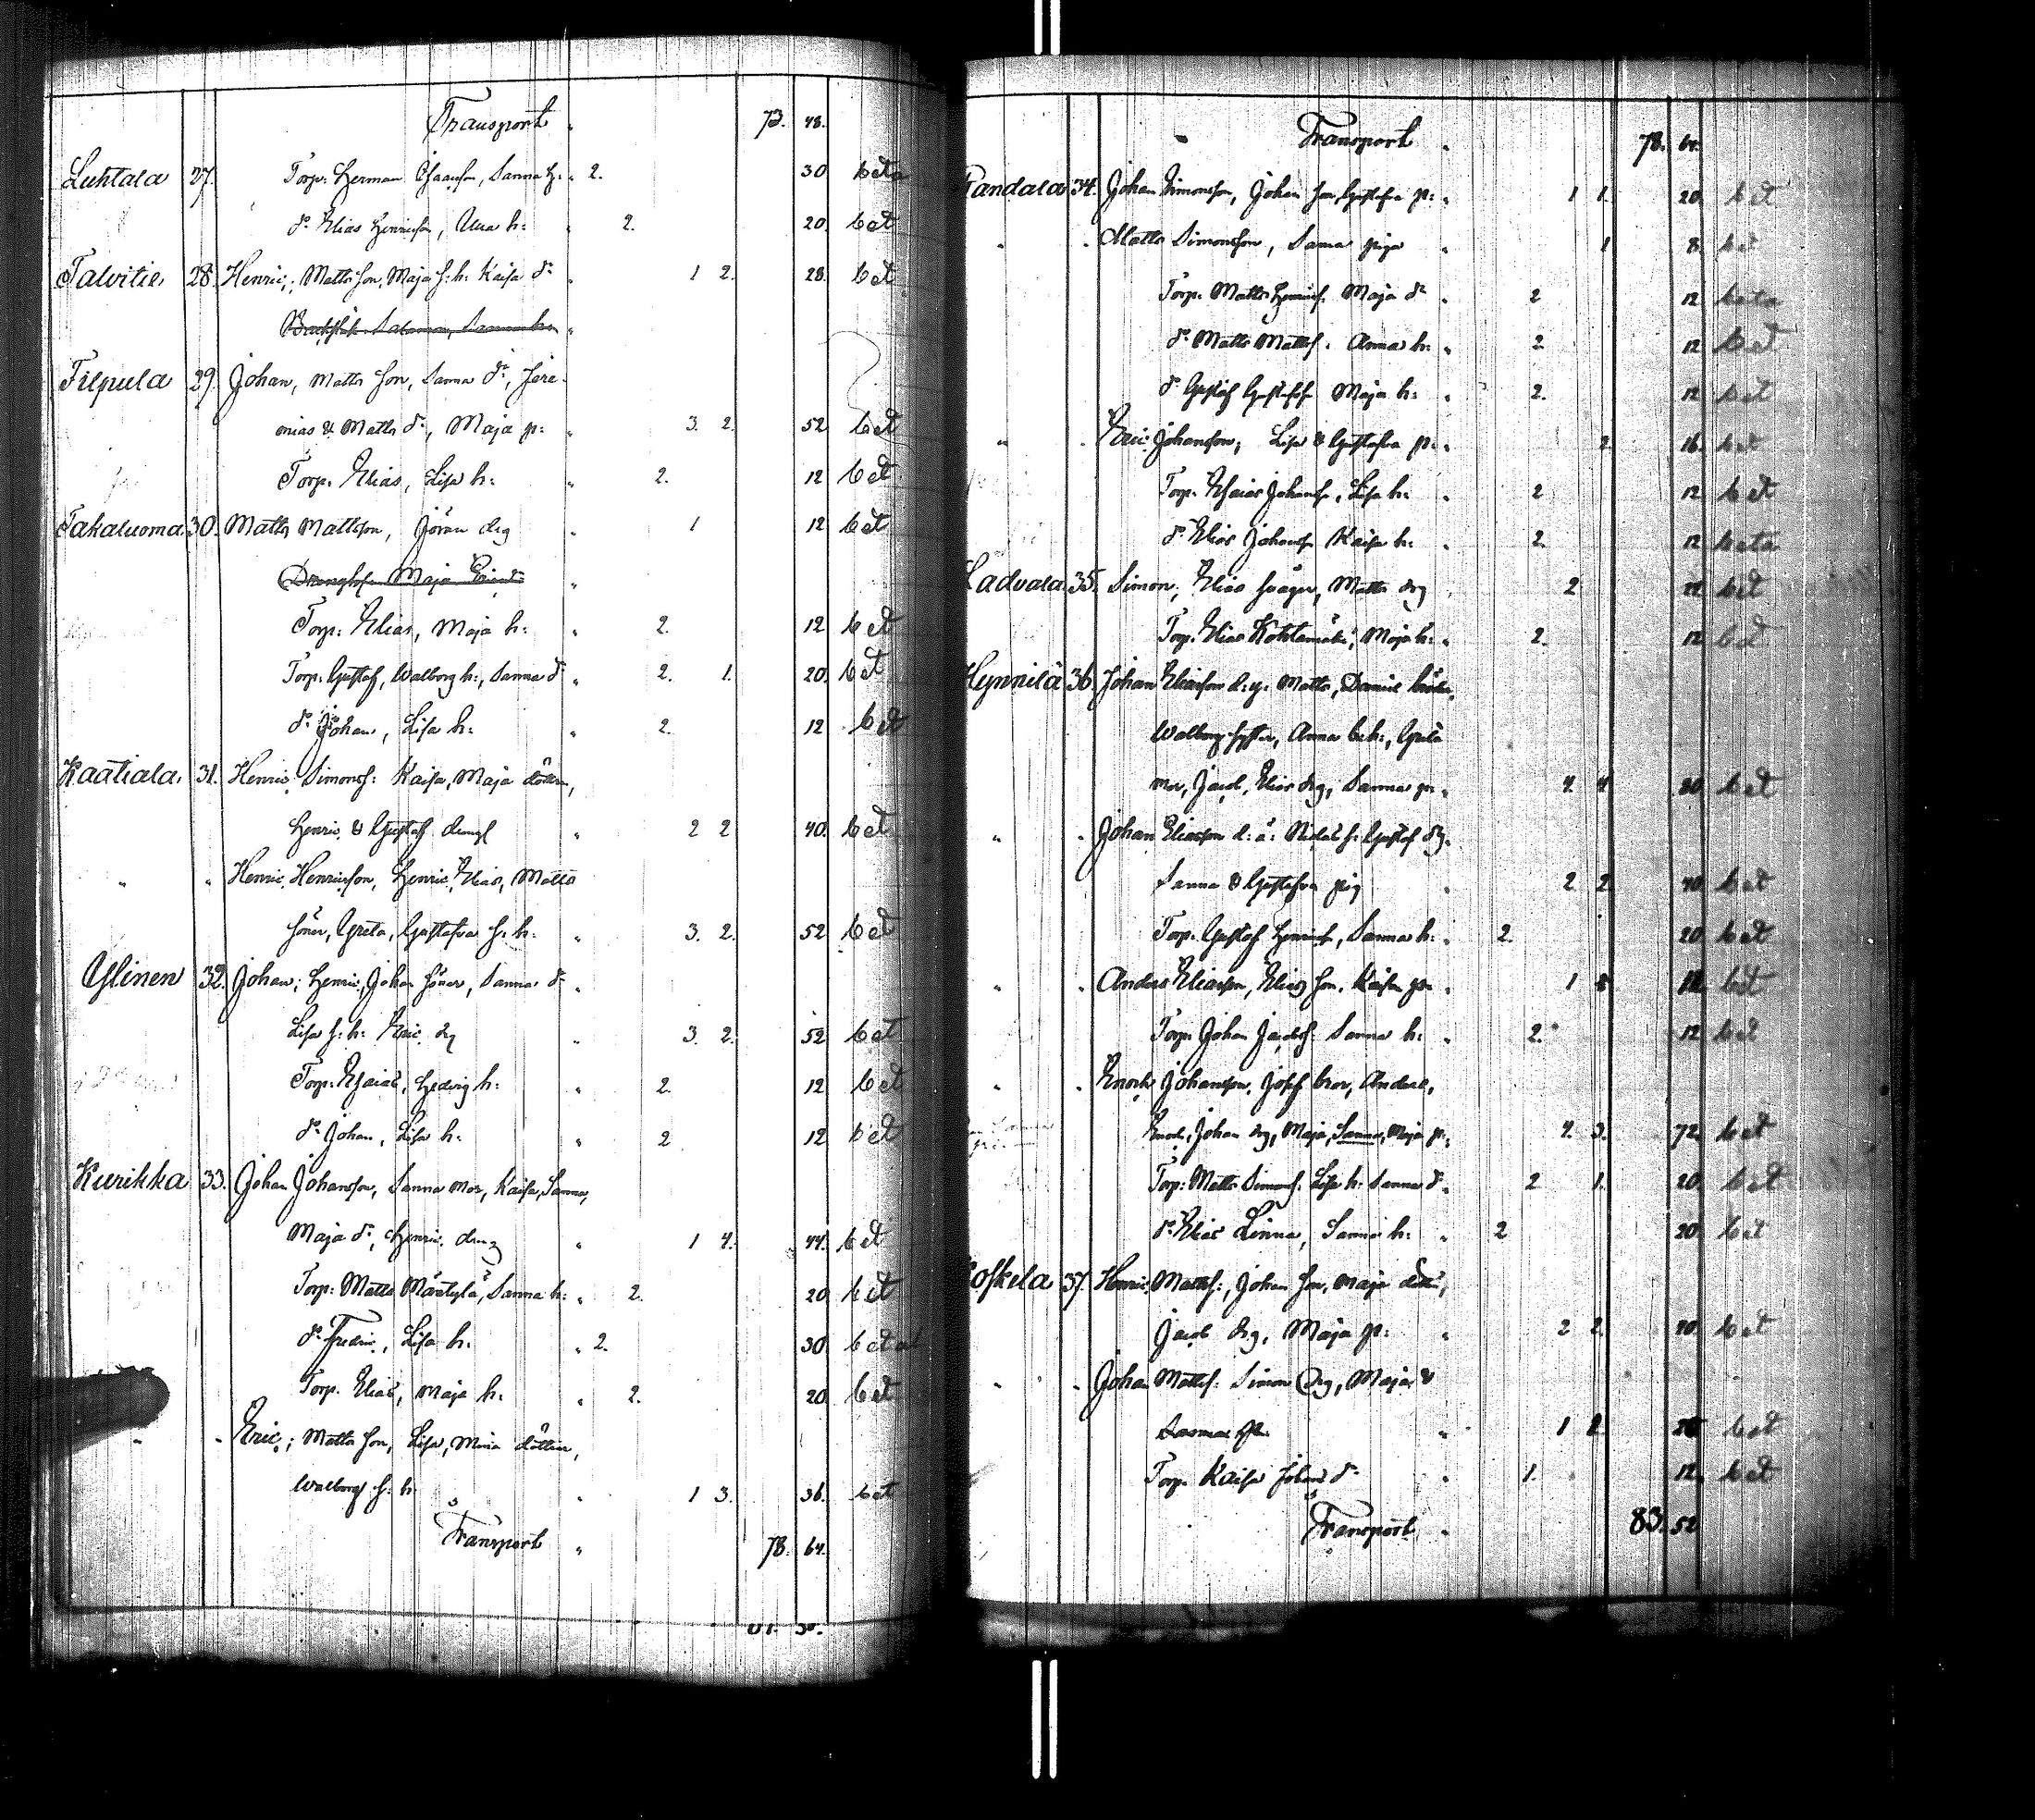 Transport „ 73. 48.
Luhtala 27. Torp. Herman Esaiass, Sanna h: „ 2. 30 beta
do Elias Henricsson, Ulla h: „ 2. 20. bet
Talvitie, 28. Henric; Matts son, Maja s: h: Kaisa dr „ 1 2. 28. bet
Sanna h: „
Filpula 29. Johan, Matts son, Sanna dr, Jere-
mias & Matts dr, Maja p: „ 3. 2. 52 bet
Torp. Elias, Lisa h: „ 2. 12 bet
Takaluoma 30. Matts Mattsson, Jöran drg „ 1 12 bet
Maja „
Torp: Elias, Maja h: „ 2. 12 bet
Torp: Gustaf, Walborg h:, Sanna dr „ 2. 1. 20. bet
do Johan, Lisa h: „ 2. 12 bet
Kaatiala, 31. Henric Simonss: Kaisa, Maja döttrar,
Henric & Gustaf drengr „ 2 2 40. bet
„ „ Henric Henricsson, Henric, Elias, Matts
söner, Greta, Gustafva s: h: „ 3. 2. 52 bet
Ylinen 32. Johan; Henric, Johan söner, Sanna dr „
Lisa s: h: Eric dg „ 3. 2. 52 bet
Torp: Esaias, Hedvig h: „ 2. 12 bet
do Johan, Lisa h: „ 2 12 bet
Kurikka 33. Johan Johansson, Sanna mor, Kaisa, Sanna,
Maja dr, Henric dreng „ 1 4. 44. bet
Torp: Matts Mäntylä, Sanna h: „ 2. 20 bet
do Fredric, Lisa h: „ 2. 30 betat
Torp. Elias, Maja h: „ 2. 20 bet
„ „ Eric; Matts son, Lisa, Maria döttrar,
Walborg s: h: „ 1 3. 36. bet
Transport „ 78. 64.
Transport „ 78. 64.
Tandala 34. Johan Simonsson, Johan son, Gustafva p: „ 1 1. 20. bet
„ „ Matts Simonsson, Sanna piga „ 1 8. bet
Torp. Matts Henricss. Maja dr „ 2 12 beta
do Matts Mattss. Anna h: „ 2 12 bet
do Gustaf Gustafss. Maja h: „ 2. 12 bet
„ „ Eric Johansson; Lisa & Gustafva p: „ 2. 16. bet
Torp. Esaias Johanss, Lisa h: „ 2 12 bet
do Elias Johanss Kaisa h: „ 2. 12 beta
Ladvala 35. Simon; Elias sväger, Matts drg 2 bet
Torp. Elias Kohtamäki, Maja h: „ 2. 12 bet
Hynnilä 36. Johan Eliasson d: y: Matts, Daniel bröder,
Walborg syster, Anna br: h:, Greta
mor, Jacob, Elias drg, Sanna p: „ 4. 4 80 bet
„ „ Johan Eliasson d: ä: s: Gustaf dg.
Sanna & Gustafva pig „ 2 2. 40 bet
Torp. Gustaf Henricss, Sanna h: „ 2. 20 bet
„ „ Anders Eliasson, Elias son, Kaisa p: „ 1 bet
Torp. Johan Jacobss. Sanna h: „ 2. 12 bet
„ „ Enoch Johansson, Josef bror, Anders,
Enoch, Johan drg, Maja, Sanna, Maja p: „ 4. 3. 72. bet
Torp: Matts Simonss: Lisa h: Sanna dr „ 2 1. 20. bet
do Elias Linna, Sanna h: „ 2 20. bet
Koskela 37. Henric Mattss:, Johan son, Maja dotter,
Jacob drg, Maja p: „ 2 2. 40. bet
„ „ Johan Mattss: Simon drg, Maja &
Sanna p: „ 1 2 bet
Torp. Kaisa Johans dr „ 1. 12. bet
Transport „ 83. 52